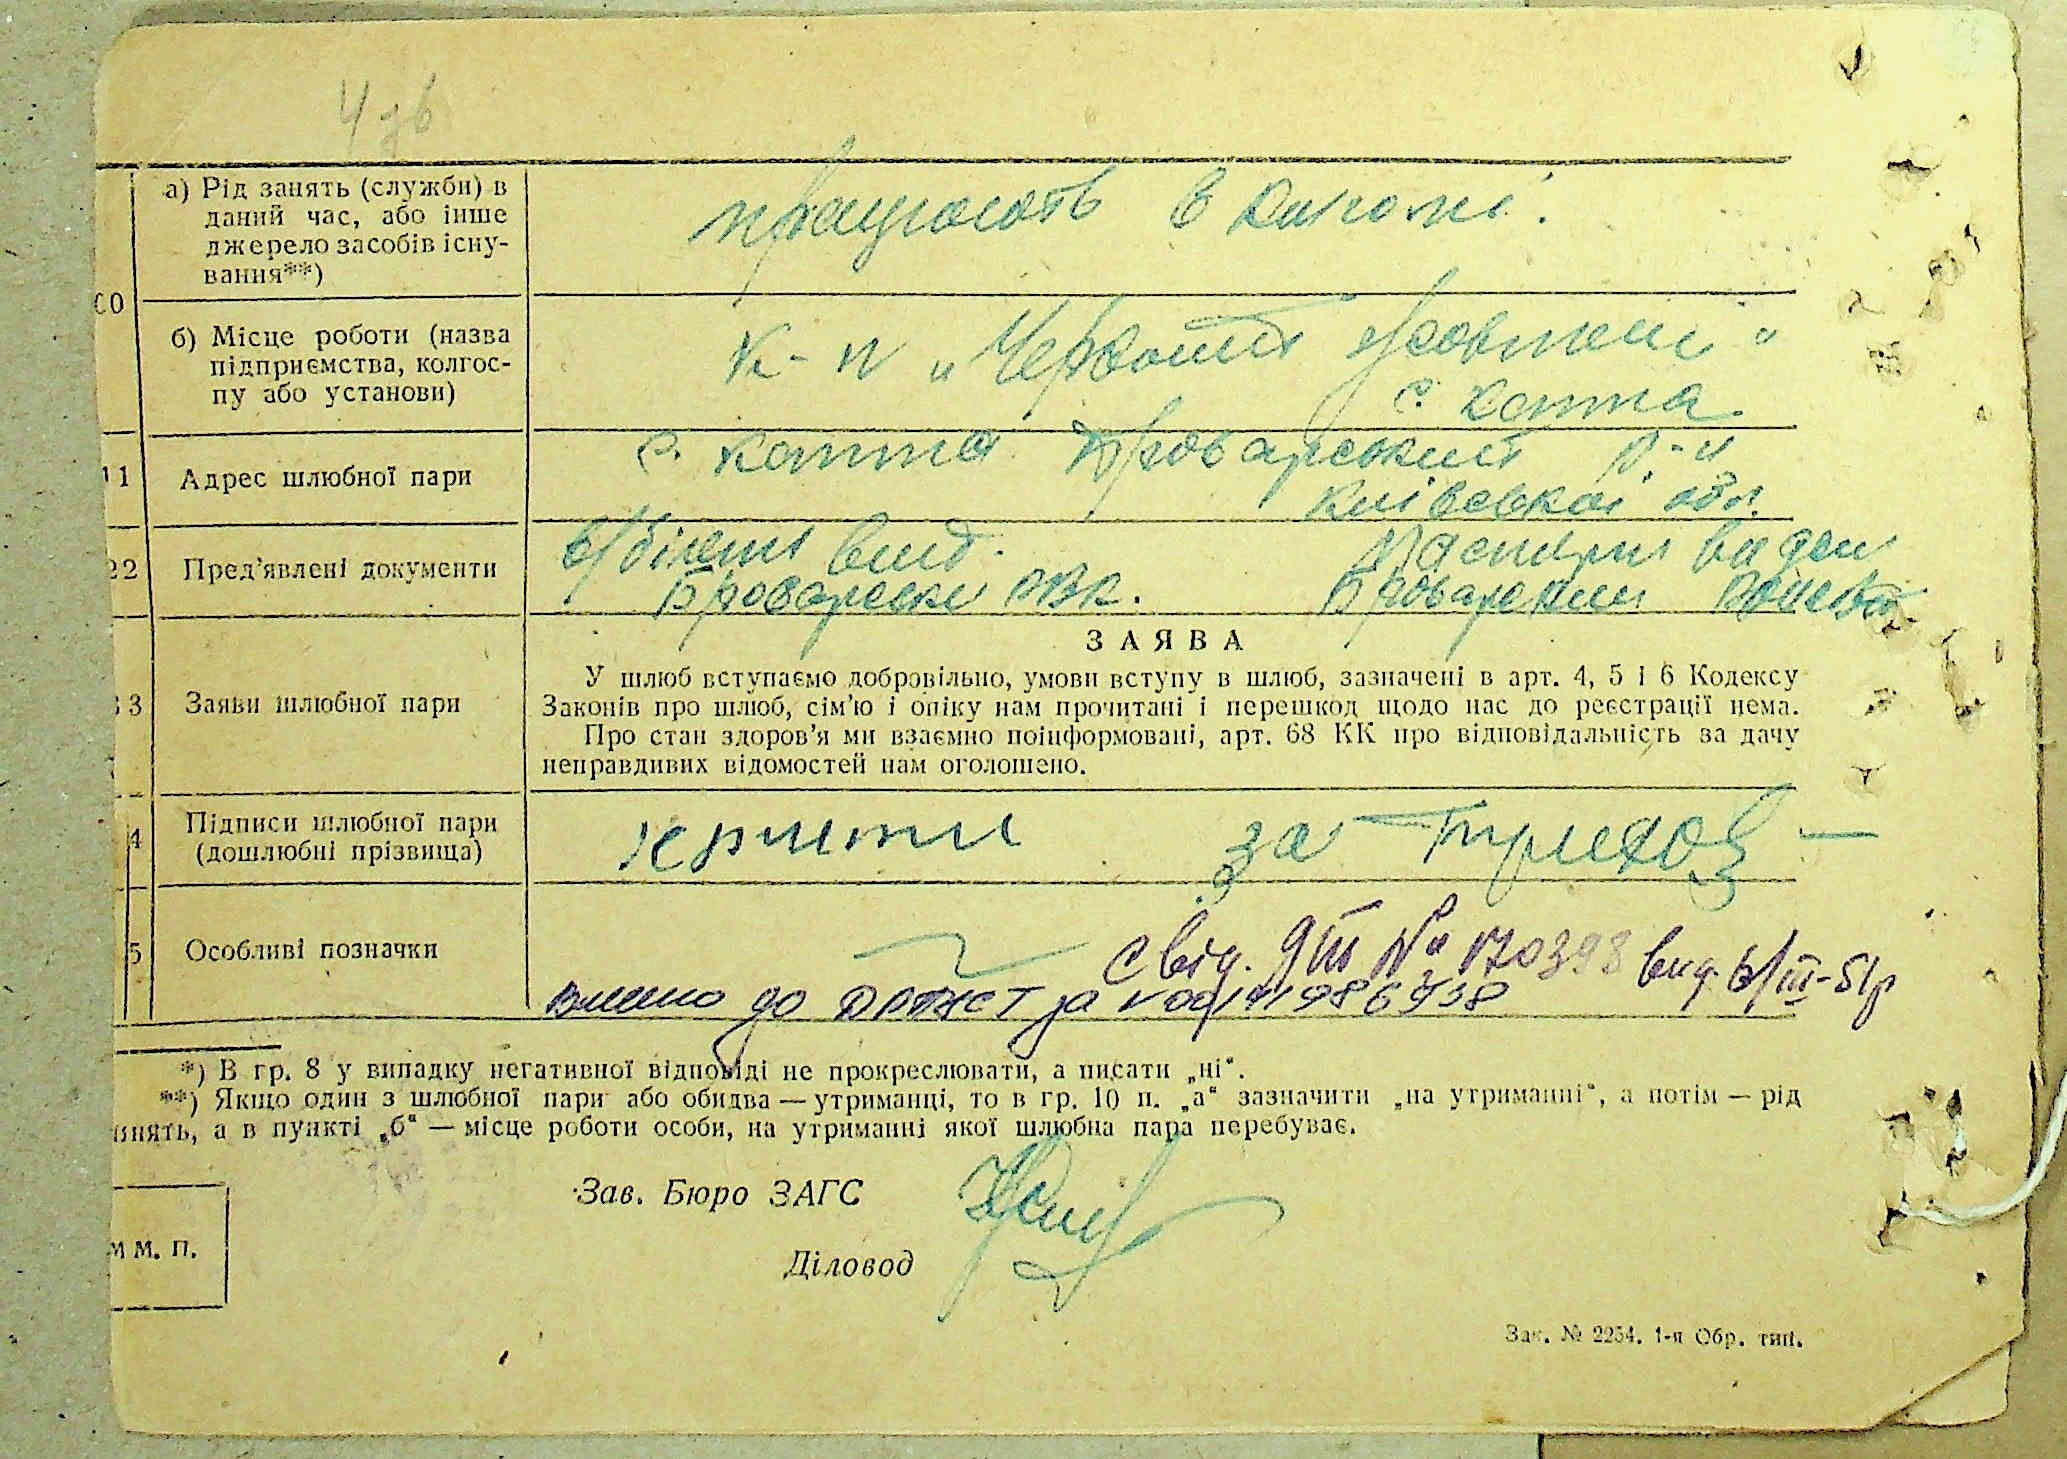 4 зв
а) Рід занять (служби) в
даний час, або інше
джерело засобів існу-
вання**)
працюють в
б) Місце роботи (назва
підприємства, колгос-
пу або установи)
к-п „Червоний Жовтень“
с.
11 Адрес шлюбної пари
с. Броварский р-н
Київської обл.
22 Пред'явлені документи
в/білет вид. Паспорт виден
Броварски РВК. Броварским
ЗАЯВА
33 Заяви шлюбної пари
У шлюб вступаємо добровільно, умови вступу в шлюб, зазначені в арт. 4, 5 і 6 Кодексу
Законів про шлюб, сім'ю і опіку нам прочитані і перешкод щодо нас до реєстрації нема.
Про стан здоров'я ми взаємно поінформовані, арт. 68 КК про відповідальність за дачу
неправдивих відомостей нам оголошено.
4 Підписи шлюбної пари
(дошлюбні прізвища)
за
5 Особливі позначки
Свід. № 170398 вид. 6/III-51р
до за
*) В гр. 8 у випадку негативної відповіді не прокреслювати, а писати „ні“.
**) Якщо один з шлюбної пари або обидва — утриманці, то в гр. 10 п. „а“ зазначити „на утриманні“, а потім — рід
занять, а в пункті „б“ — місце роботи особи, на утриманні якої шлюбна пара перебуває.
Зав. Бюро ЗАГС
м м. п.
Діловод
Зак. № 2254. 1-я Обр. тип.